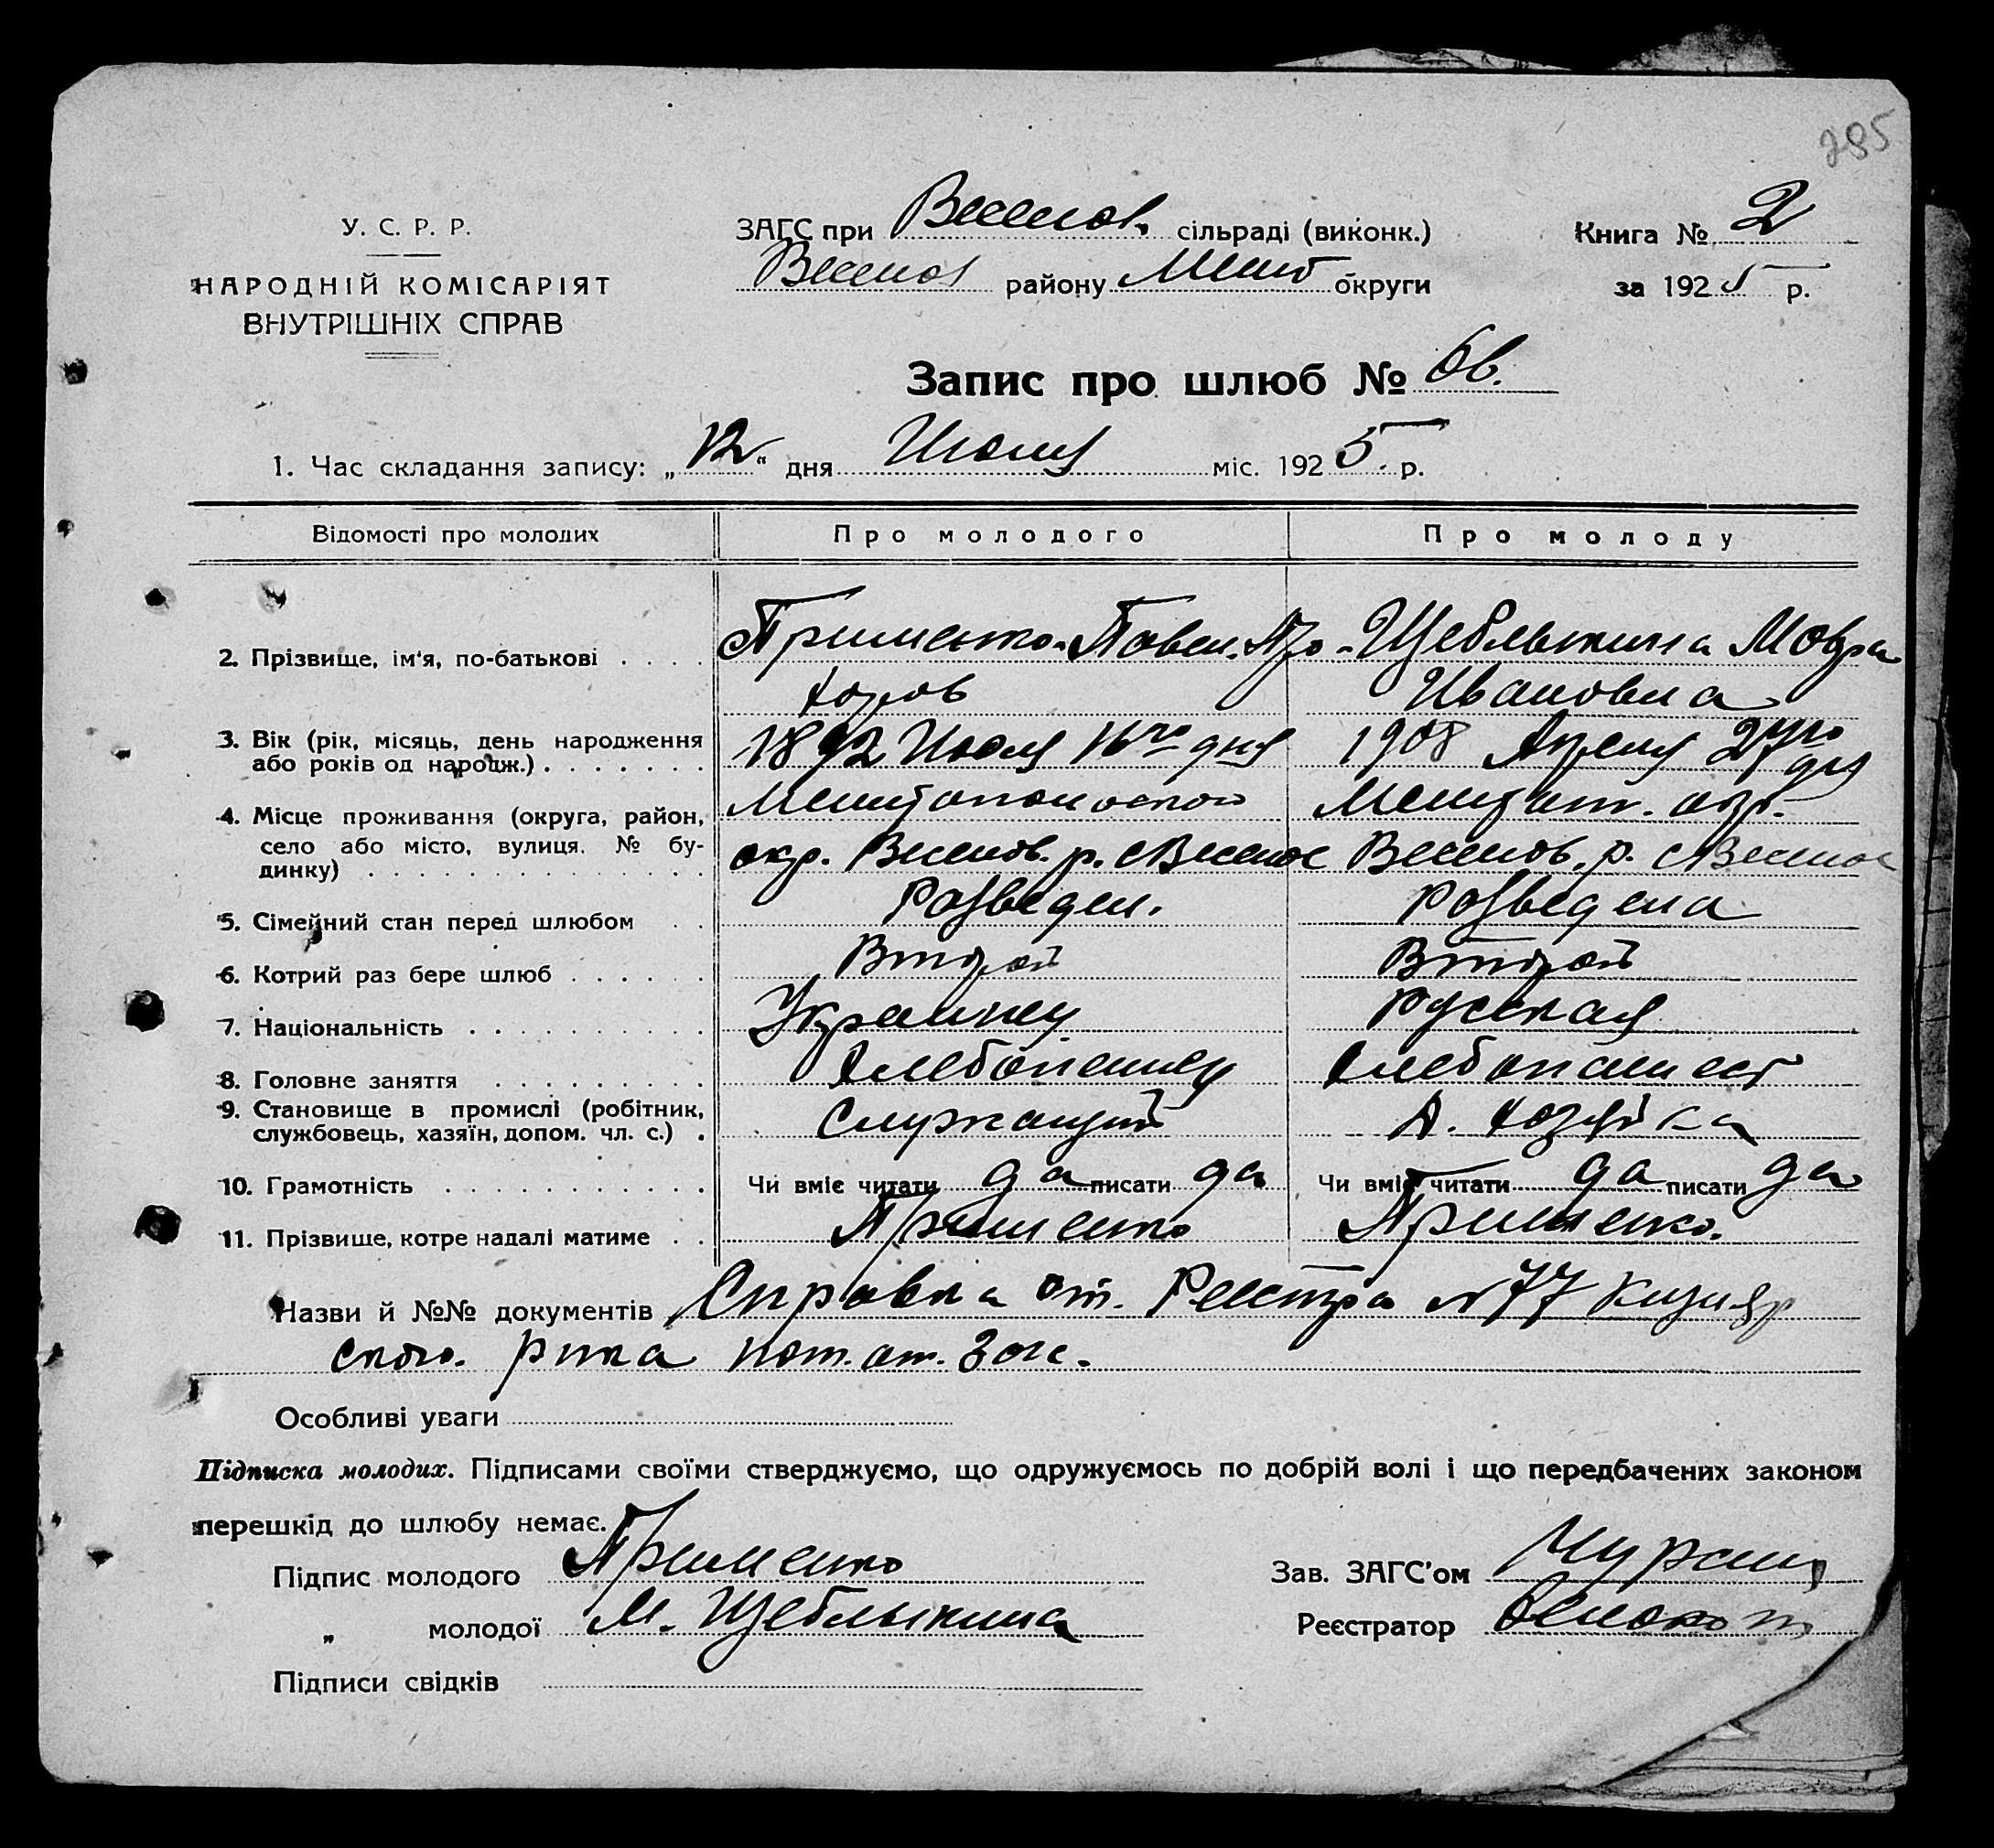 285
У. С. Р. Р.
НАРОДНІЙ КОМІСАРІЯТ
ВНУТРІШНІХ СПРАВ
ЗАГС при Веселов. сільраді (виконк.)
Веселов району Меліт округи
Книга № 2
за 1925 р.
Запис про шлюб №
1. Час складання запису: „12“ дня Июля міс. 1925 р.
Відомості про молодих Про молодого Про молоду
2. Прізвище, ім'я, по-батькові . . . . Павел. Щеблыкина Мовра
Ивановна
3. Вік (рік, місяць, день народження 1892 Июля 16го дня 1908 Апреля дня
або років од народж.) . . . . . . .
4. Місце проживання (округа, район, Мелитопольской Мелитоп. окр.
село або місто, вулиця. № бу- окр. Веселов. р. с Веселое Веселов. р. с Веселое
динку) . . . . . . . . . . . . . . .
5. Сімейний стан перед шлюбом . . Розведен. Розведена
6. Котрий раз бере шлюб . . . . . . Второй Второй
7. Національність . . . . . . . . . . Украинец Русская
8. Головне заняття . . . . . . . . . Хлебопашец
9. Становище в промислі (робітник, Служащий Д. хозяйка
службовець, хазяїн, допом. чл. с.) .
10. Грамотність . . . . . . . . . . . Чи вміє читати да писати да Чи вміє читати да писати да
11. Прізвище, котре надалі матиме . . Применко Применко.
Назви й №№ документів Справка от. Реестра № 77
ского. Рика Загс.
Особливі уваги
Підписка молодих. Підписами своїми стверджуємо, що одружуємось по добрій волі і що передбачених законом
перешкід до шлюбу немає.
Підпис молодого Применко
„ молодої М. Щеблыкина
Підписи свідків
Зав. ЗАГС'ом
Реєстратор